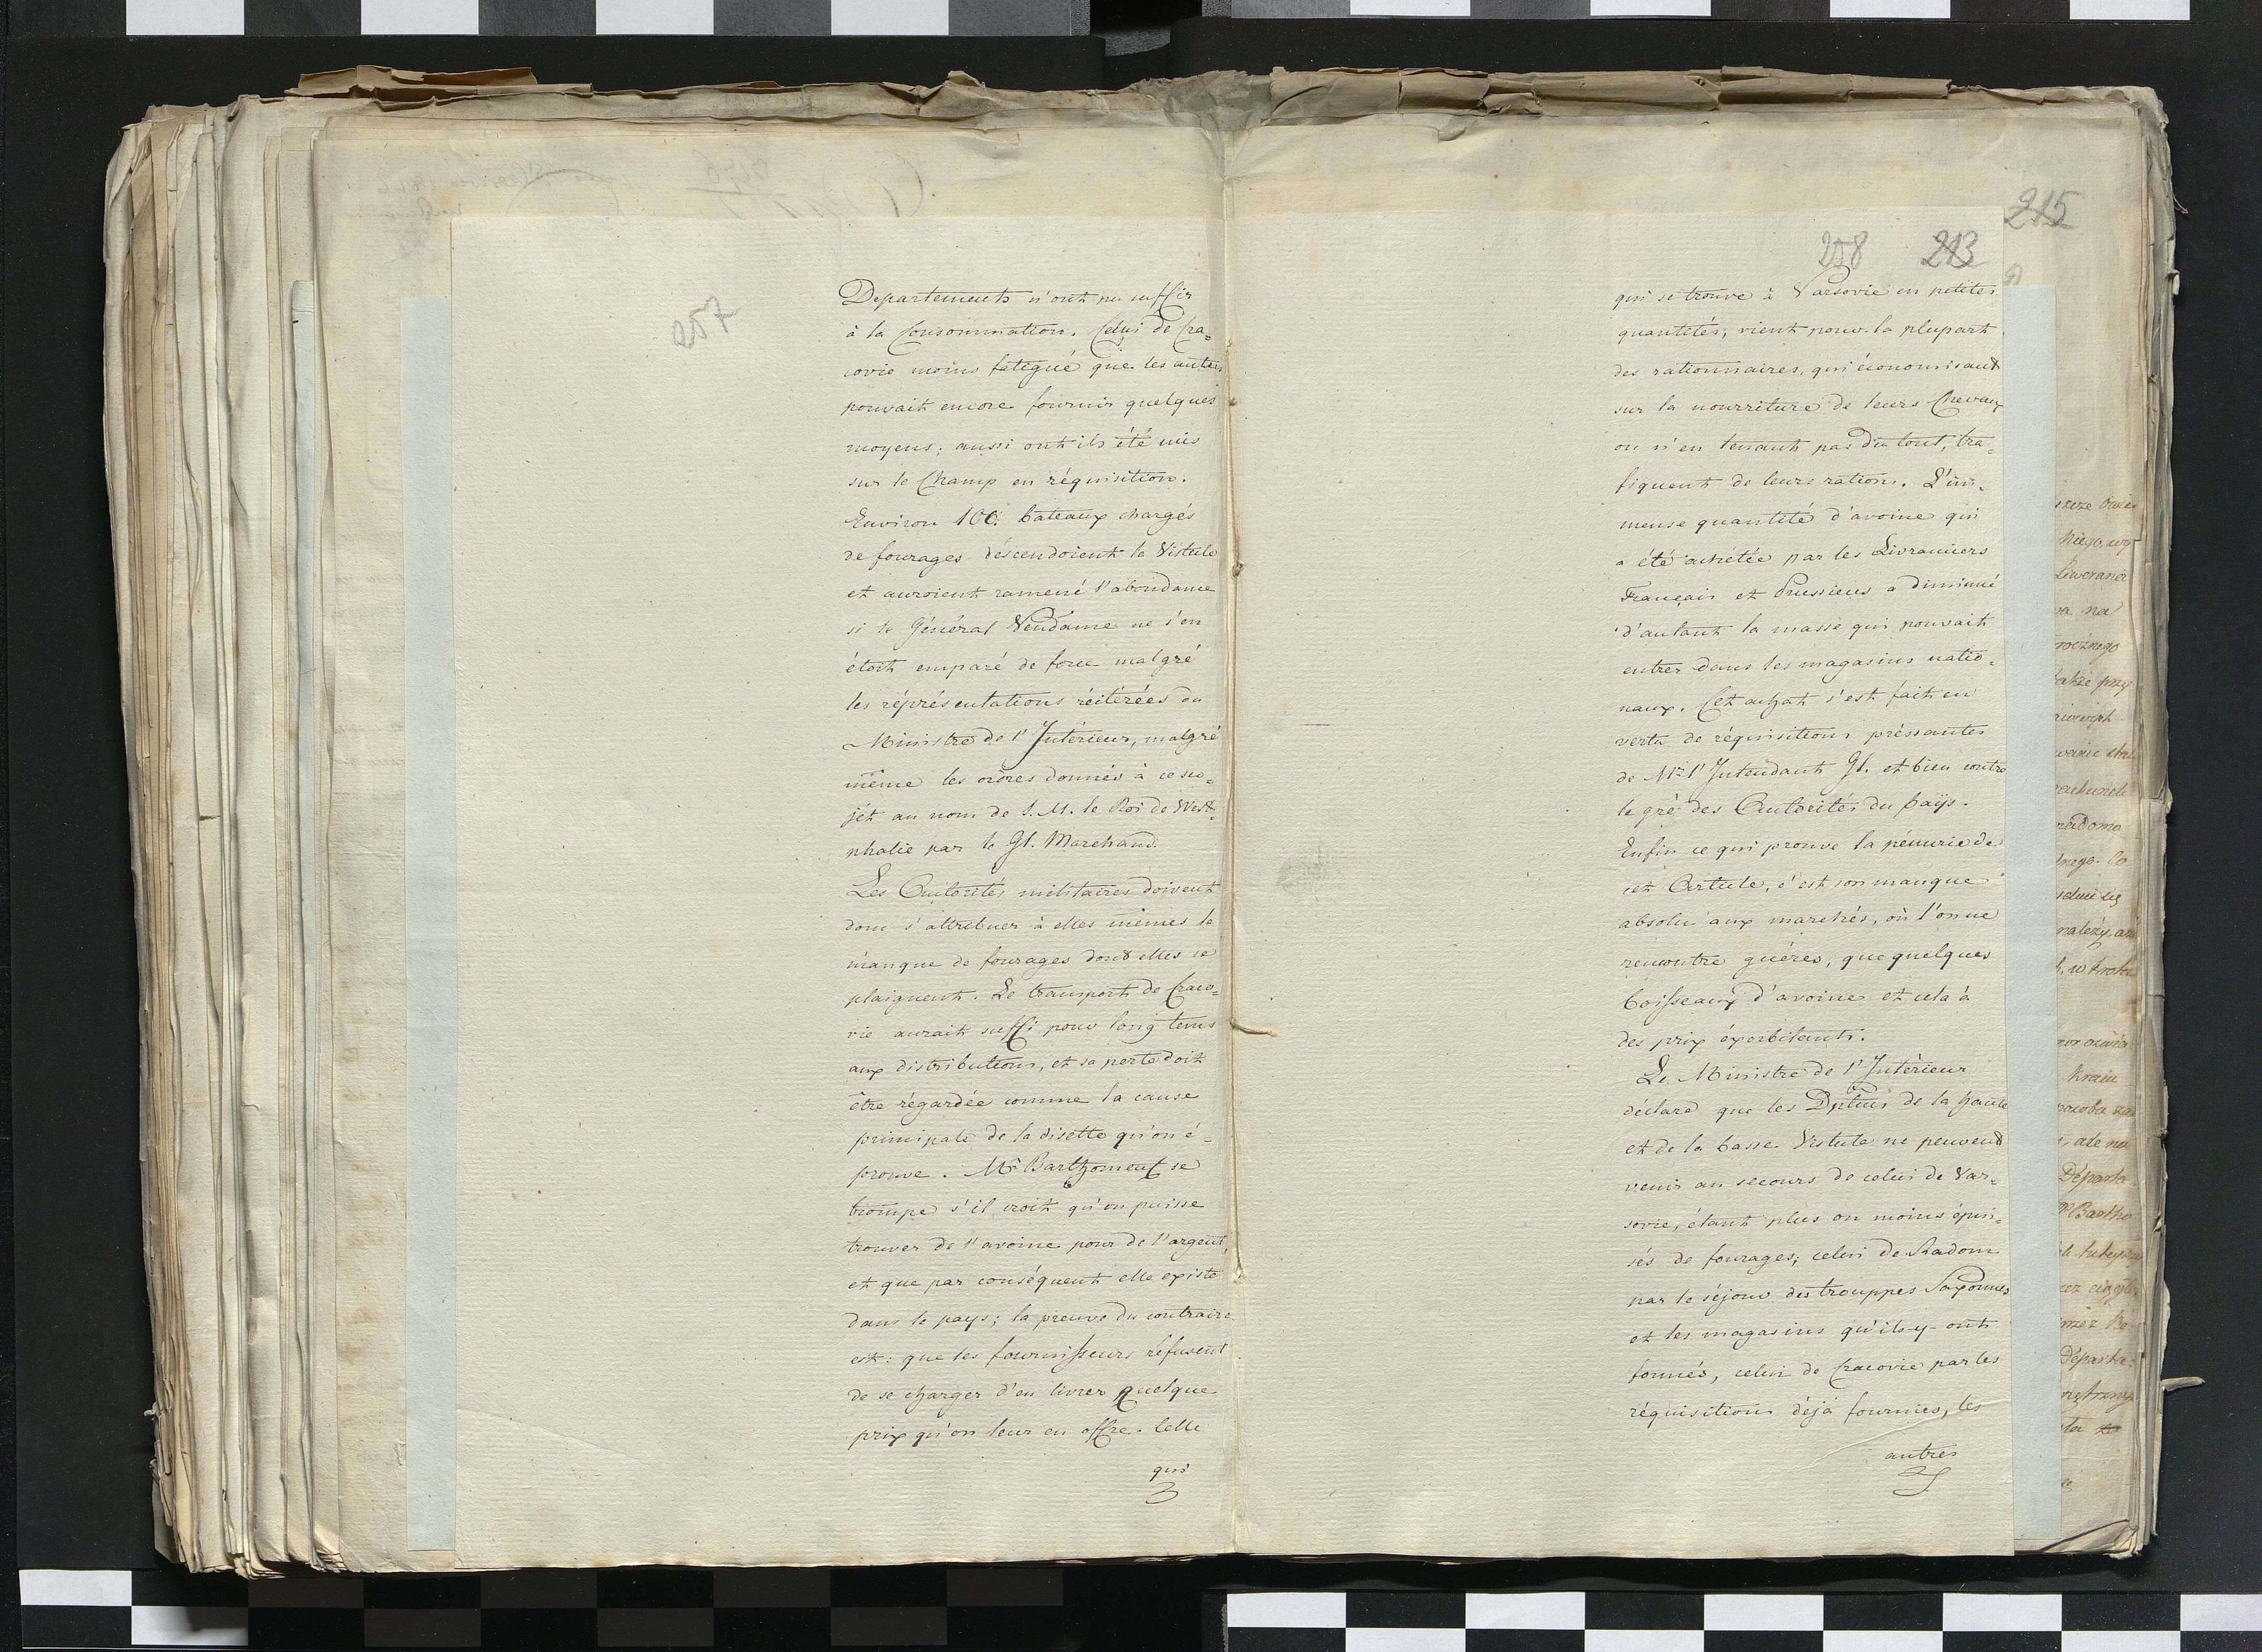 Departements n'ont pu suffir
à la Consommation. Celui de Cra=
covie moins fatigué que les autres
pouvait encore fournir quelques
moyens; aussi ont ils été mis
sur le Champ en réquisition.
Environ 100. bateaux chargés
de fourages déscendoient la Vistule
et auroient ramené l'abondance
si le Général Vendame ne s'en
étoit emparé de force malgré
les réprésentations réitérées du
Ministre de l'Intérieur, malgré
même les ordres donnés à ce su=
jét au nom de S. M. le Roi de West=
phalie par le Gl. Marchand.
Les Autorités militaires doivent
donc s'attribuer à elles mèmes le
manque de fourages dont elles se
plaignent. Le transport de Craco=
vie aurait suffi pour long tems
aux distributions, et sa perte doit
être régardée comme la cause
principale de la disette qu'on é=
prouve. Mr Barthomeuf se
trompe s'il croit qu'on puisse
trouver de l'avoine pour de l'argent,
et que par conséquent elle existe
dans le pays; la preuve du contraire
est: que les fournisseurs réfusent
de se charger d'en livrer quelque
prix qu'on leur en offre. Celle
qui
215
258 213
qui se trouve à Varsovie en petites
quantités, vient pour la plupart
des rationnaires, qui économisant
sur la nourriture de leurs Chevaux
ou n'en tenant pas du tout, tra=
fiquent de leurs rations. L'im=
mense quantité d'avoine qui
a été achétée par les Livranciers
Français et Prussiens a diminué
d'autant la masse qui pouvait
entrer dans les magasins natio=
naux. Cet achat s'est fait en
vertu de réquisitions préssantes
de Mr l'Intendant Gl. et bien contre
le gré des Autorités du païs.
Enfin ce qui prouve la pénurie de
cet Article, c'est son manque
absolu aux marchés, où l'on ne
rencontre guéres, que quelques
boisseaux d'avoine et cela à
des prix éxorbitants.
Le Ministre de l'Intérieur
déclare que les Dptms de la haute
et de la basse Vistule ne peuvent
venir au secours de celui de Var=
sovie, étant plus ou moins épui=
sés de fourages; celui de Radom
par le séjour des trouppes Saxonnes
et les magasins qu'ils-y-ont
formés, celui de Cracovie par les
réquisitions déjà fournies, les
autres